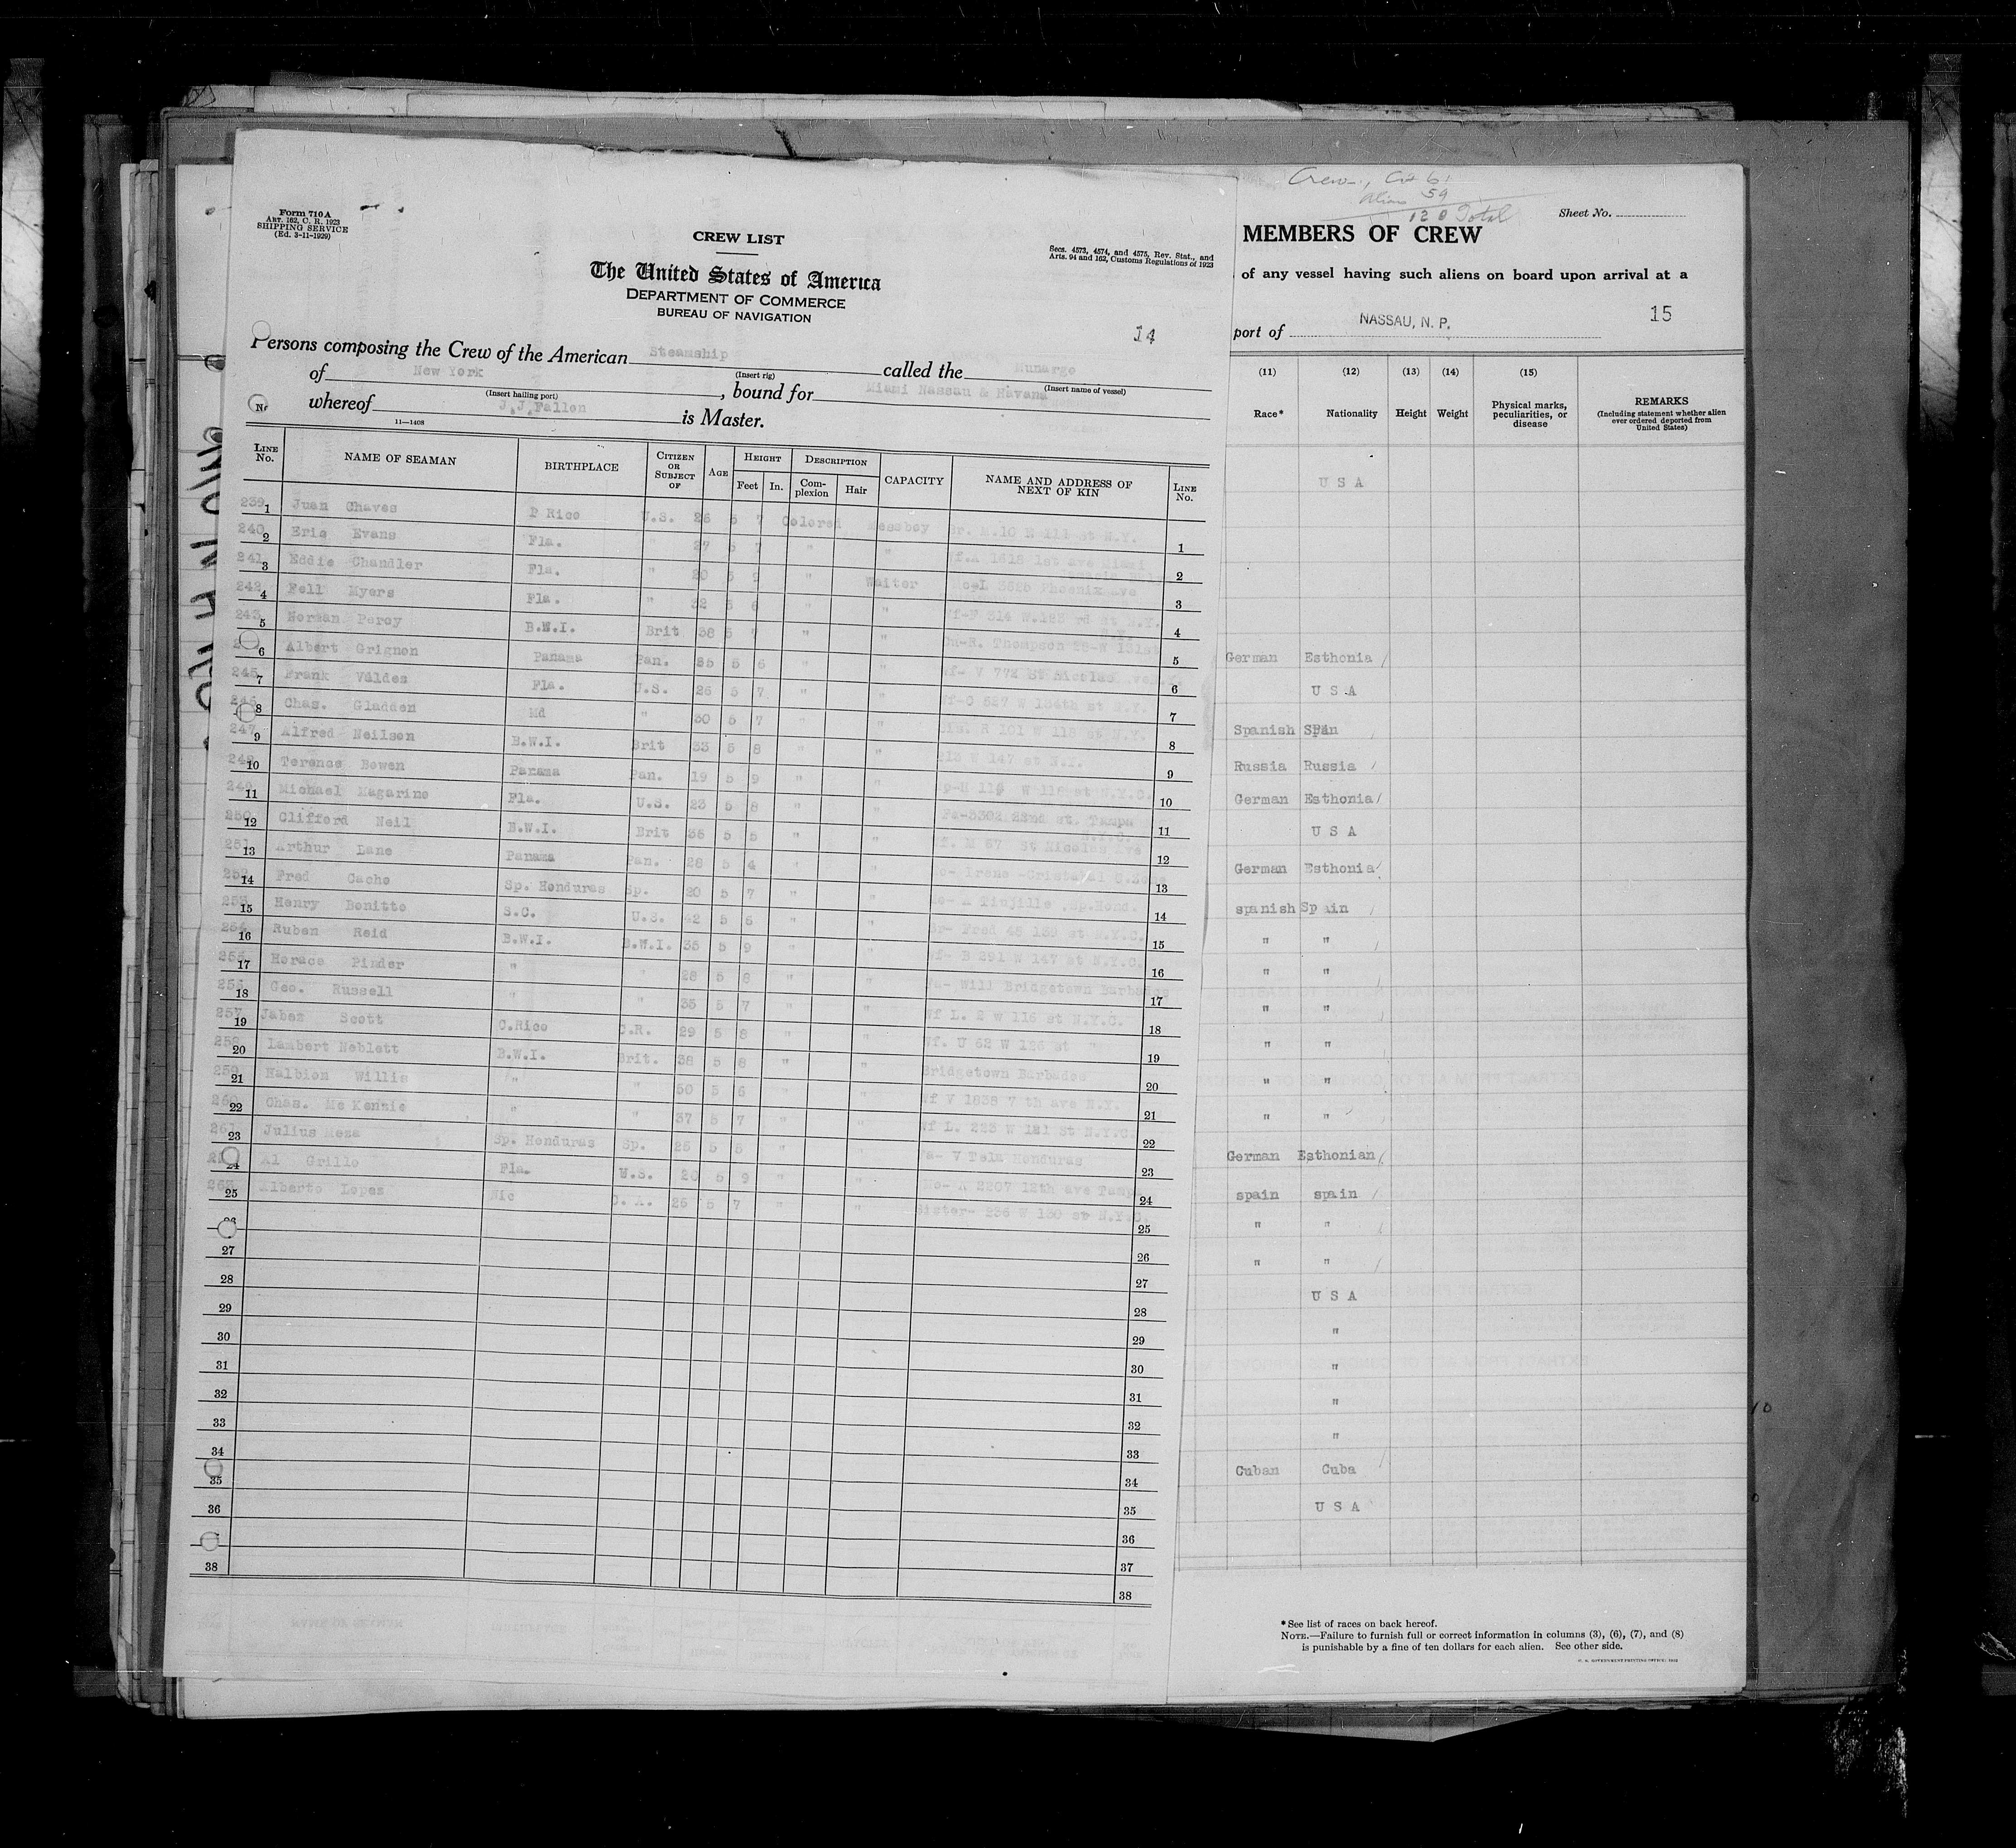 Form 710 A
ART. 162, C. R. 1923
SHIPPING SERVICE
(Ed. 3-11-1929)
CREW LIST
Secs. 4573, 4574, and 4575, Rev. Stat., and
Arts. 94 and 162, Customs Regulations of 1923
The United States of America
DEPARTMENT OF COMMERCE
BUREAU OF NAVIGATION
14
Persons composing the Crew of the American Steamship called the Munargo
(Insert rig) (Insert name of vessel)
of New York, bound for Miami Nassau & Havana
(Insert hailing port)
whereof J.J.Fallon is Master.
11—1408
LINE No. NAME OF SEAMAN BIRTHPLACE CITIZEN OR SUBJECT OF AGE HEIGHT Feet In. DESCRIPTION Complexion Hair CAPACITY NAME AND ADDRESS OF NEXT OF KIN LINE No.
239 1 Juan Chaves P Rico U.S. 26 5 7 Colored Messboy Br. M.10 E 111 st N.Y. 1
240 2 Eric Evans Fla. " 27 5 7 " " Wf.A 1618 1st ave Miami 2
241 3 Eddie Chandler Fla. " 20 5 " Waiter Phoenix Ave 3
242 4 Fell Myers Fla. " 32 5 6 " " Wf-F 314 W.153 rd st N.Y. 4
243 5 Norman Percy B.W.I. Brit 38 5 7 " " R. Thompson W 131st 5
6 Albert Grignon Panama Pan. 35 5 6 " " Wf- V 772 St Nicolas 6
245 7 Frank Valdes Fla. U.S. 26 5 7 " " 527 W 134th st N.Y. 7
246 8 Chas. Gladden Md " 30 5 7 " " R 101 W 118 st N.Y. 8
247 9 Alfred Neilson B.W.I. Brit 33 5 8 " " W 147 st N.Y. 9
248 10 Terence Bowen Panama Pan. 19 5 9 " " W 118 st N.Y.C. 10
249 11 Michael Magarine Fla. U.S. 23 5 8 " " Fa-3302 22nd st. Tampa 11
250 12 Clifford Neil B.W.I. Brit 36 5 5 " " Wf. M 67 St Nicolas Ave 12
251 13 Arthur Lane Panama Pan. 28 5 4 " " Irene -Cristabal C.Zone 13
252 14 Fred Cacho Sp. Honduras Sp. 20 5 7 " " Sp.Hond. 14
253 15 Henry Bonitto S.C. U.S. 42 5 6 " " Br- Fred 45 139 st N.Y.C. 15
254 16 Ruben Reid B.W.I. B.W.I. 35 5 9 " " Wf- B 291 W 147 st N.Y.C. 16
255 17 Horace Pinder " " 28 5 8 " " Fa- Will Bridgetown Barbados 17
256 18 Geo. Russell " " 35 5 7 " " Wf L. 2 w 116 st N.Y.C. 18
257 19 Jabez Scott C.Rico C.R. 29 5 8 " " Wf. U 62 W 126 st " 19
258 20 Lambert Neblett B.W.I. Brit. 38 5 8 " " Bridgetown Barbados 20
259 21 Halbion Willis " " 50 5 6 " " Wf V 1838 7 th ave N.Y. 21
260 22 Chas. Mc Kennie " " 37 5 7 " " Wf L. 223 W 121 St N.Y.C. 22
261 23 Julius Meza Sp. Honduras Sp. 25 5 5 " " Fa- V Tela Honduras 23
24 Al Grillo Fla. U.S. 20 5 9 " " Mo- A 2207 12th ave Tampa 24
263 25 Alberto Lopes Nic C. A. 25 5 7 " " Sister- 236 W 130 st N.Y.C. 25
26 26
27 27
28 28
29 29
30 30
31 31
32 32
33 33
34 34
35 35
36 36
37
38 38
Crew
Alien 59
120 Total
Sheet No.
MEMBERS OF CREW
of any vessel having such aliens on board upon arrival at a
port of NASSAU, N. P. 15
(11) (12) (13) (14) (15)
Race* Nationality Height Weight Physical marks, peculiarities, or disease REMARKS (Including statement whether alien ever ordered deported from United States)
U S A
German Esthonia
U S A
Spanish Spain
Russia Russia
German Esthonia
U S A
German Esthonia
spanish Spain
" "
" "
" "
" "
" "
" "
German Esthonian
spain spain
" "
" "
U S A
"
"
"
"
Cuban Cuba
U S A
* See list of races on back hereof.
NOTE.—Failure to furnish full or correct information in columns (3), (6), (7), and (8)
is punishable by a fine of ten dollars for each alien. See other side.